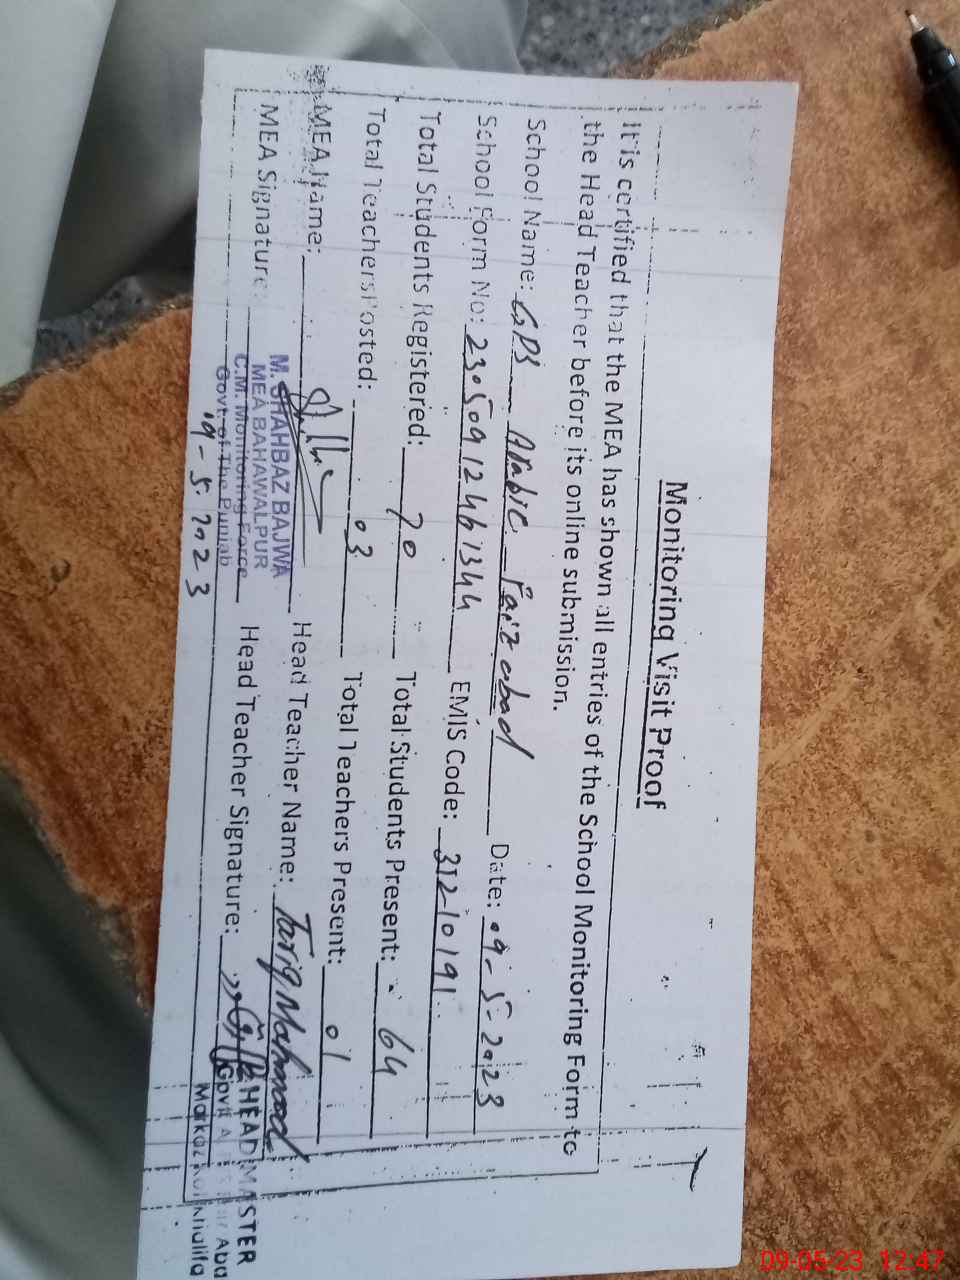 Monitoring Visit Proof
It is certified that the MEA has shown all entries of the School Monitoring Form to
the Head Teacher before its online submission.
School Name: GPS Arabic Faiz abad Date: 09-5-2023
School Form No: 23050912461344 EMIS Code: 31210191
Total Students Registered: 70 Total Students Present: 64
Total Teachers Posted: 03 Total Teachers Present: 01
MEA Name: Head Teacher Name: Tariq Mahmood
MEA Signature: Head Teacher Signature:
M. SHAHBAZ BAJWA
MEA BAHAWALPUR
C.M. Monitoring Force
Govt of The Punjab
09-5-2023
HEAD MASTER
Govt
Markaz
09-05-23 12:47